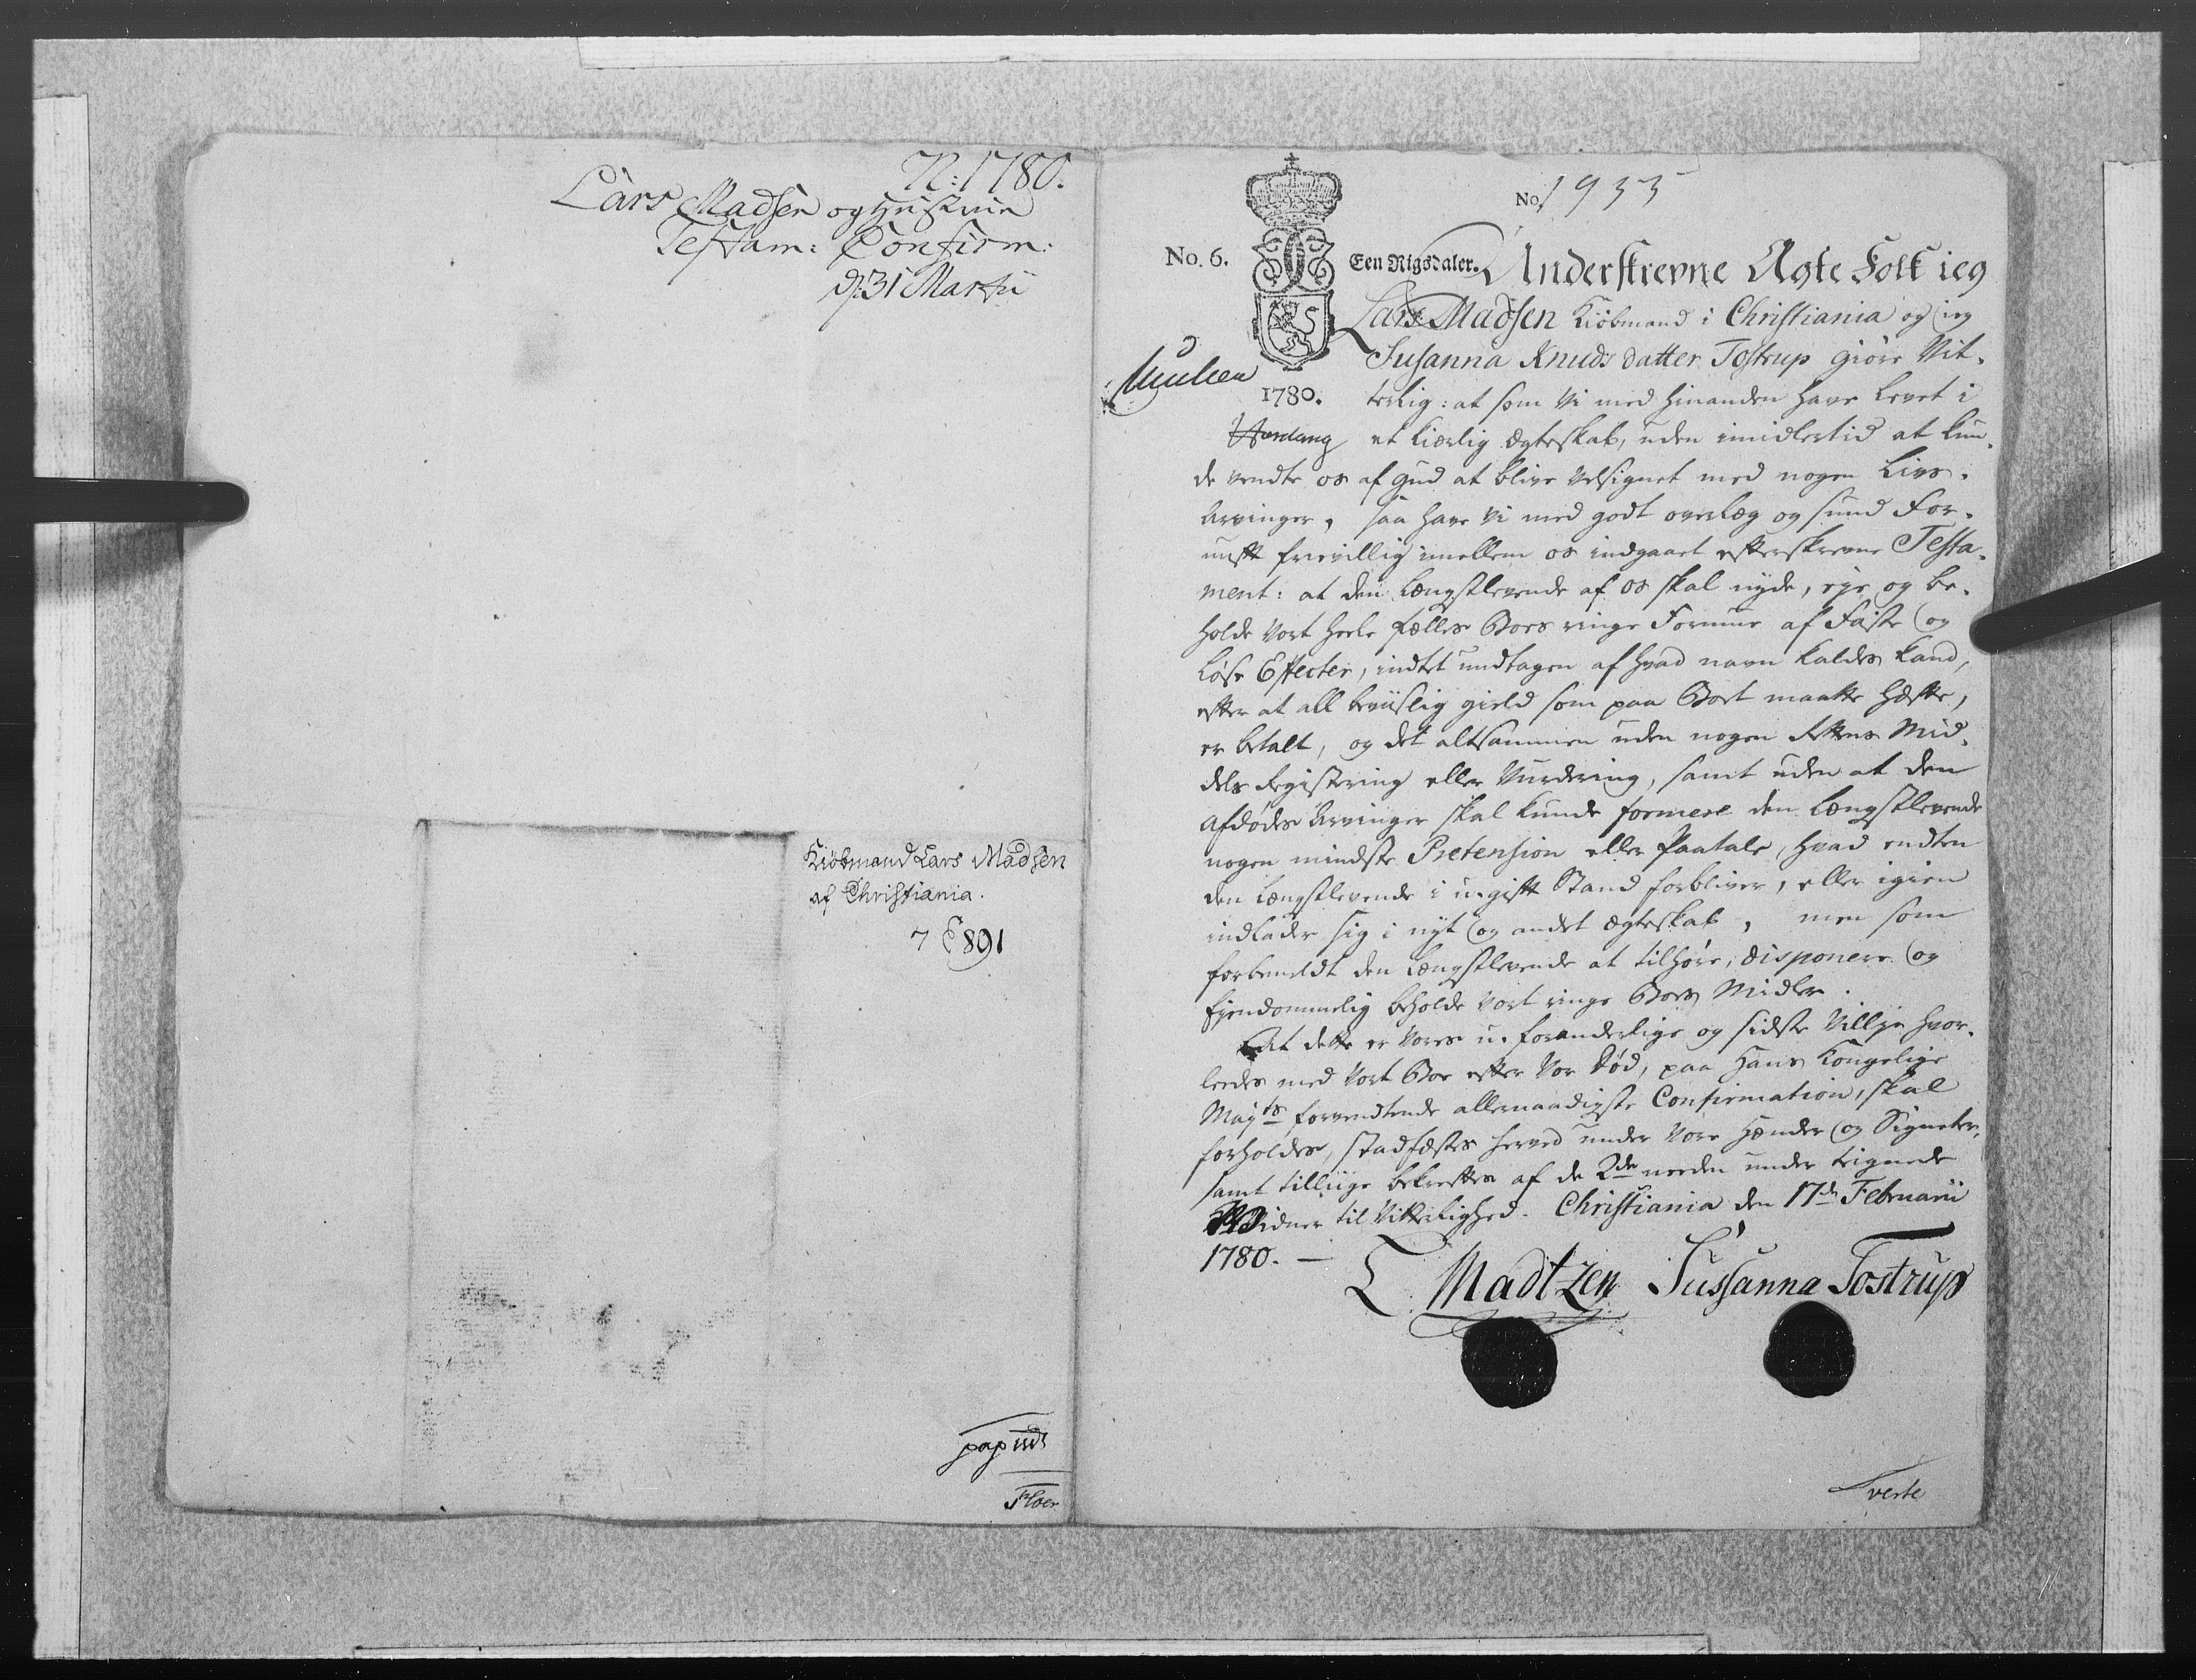 N: 1780.
Lars Madsen og Hustrue
Testam: Confirm:
d: 31 Martii
Kiöbmand Lars Madsen
af Christiania.
7 E 891
No. 1933
No. 6.
Een Rigsdaler.
1780.
Underskrevne Ægte Folk ieg
Lars Madsen Kiöbmand i Christiania og ieg
Susanna Knuds datter Tostrup giöre Vit-
terlig: at som Vi med hinanden have levet i
et kierlig Ægteskab, uden imidlertid at kun-
de vendte os af Gud at blive velsignet med nogen Livs-
Arvinger, saa have Vi med godt overlæg og sund For-
nuft frivillig imellem os indgaaet efterskrevne Testa-
ment: at den Længstlevende af os skal nyde, eje og be-
holde Vort heele fælles Boes ringe Formue af Faste og
Løse Effecter, indtet undtagen af hvad navn kaldes kand,
efter at all beviislig gield som paa Boet maatte hæfte,
er betalt, og det altsammen uden nogen Rettens Mid-
dels Registering eller Vurdering, samt uden at den
Afdødes Arvinger skal kunde formere den Længstlevende
nogen mindste Prætension eller Paatale, hvad endten
den Længstlevende i u-gift Stand forbliver, eller igien
indlader sig i nyt og andet ægteskab, men som
forbemeldt den Længstlevende at tilhøre, disponere og
Ejendommelig beholde Vort ringe Boes Midler.
At dette er Vores u-foranderlige og sidste Villje hvor-
ledes med Vort Boe efter Vor Død, paa Hans Kongelige
Mayts forvendtende allernaadigste Confirmation, skal
forholdes, stadfæstes herved under Vore Hænder og Signeter,
samt tillige bekreftes af de 2de neden under tegnede
Vidner til Vitterlighed. Christiania den 17de Februarii
1780. —
L. Madtzen Sussanna Tostrup
verte